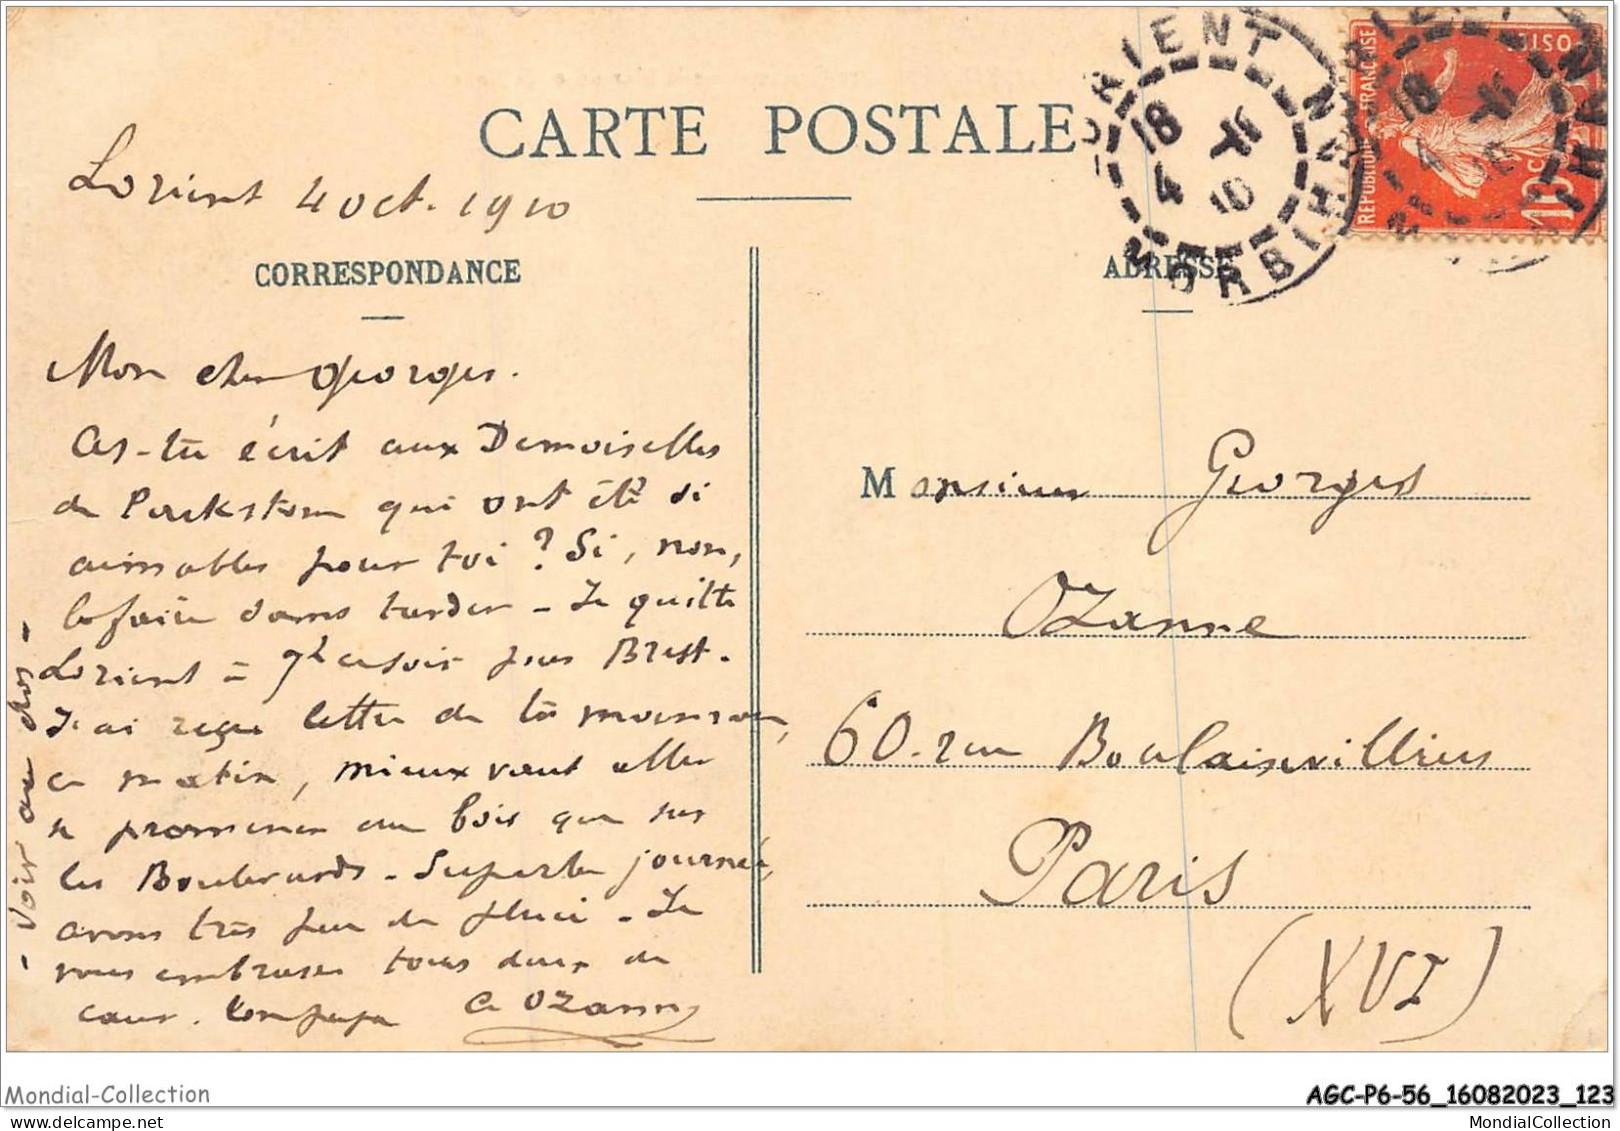 CARTE POSTALE
Lorient 4 oct. 1910
CORRESPONDANCE
ADRESSE
LORIENT
MORBIHAN
18 4 10
REPUBLIQUE FRANÇAISE
POSTES
10 c
Mon cher Georges.
As-tu écrit aux Demoiselles
de Parkstone qui ont été si
aimables pour toi ? Si, non,
le faire sans tarder - Je quitte
Lorient à 7h ce soir pour Brest.
J'ai reçu lettre de ta maman,
ce matin, mieux vaut aller
se promener au bois que sur
les Boulevards - Superbe journée,
avons très peu de pluie - Je
vous embrasse tous deux de
cœur. Ton papa A Ozanne
- Voir au dos -
Monsieur Georges
Ozanne
60. rue Boulainvilliers
Paris
(XVI)
Mondial-Collection
AGC-P6-56_16082023_123
MondialCollection.com